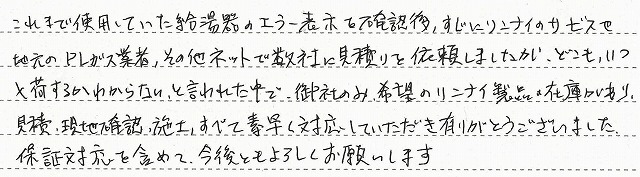 これまで使用していた給湯器のエラー表示を確認後、すぐにリンナイのサービスや
地元のPLガス業者、その他ネットで数社に見積りを依頼しましたが、どこも、いつ
入荷するかわからない、と言われた中で、御社のみ、希望のリンナイ製品の在庫があり、
見積、現地確認、施工、すべて素早く対応していただき有りがとうございました。
保証対応を含めて、今後ともよろしくお願いします